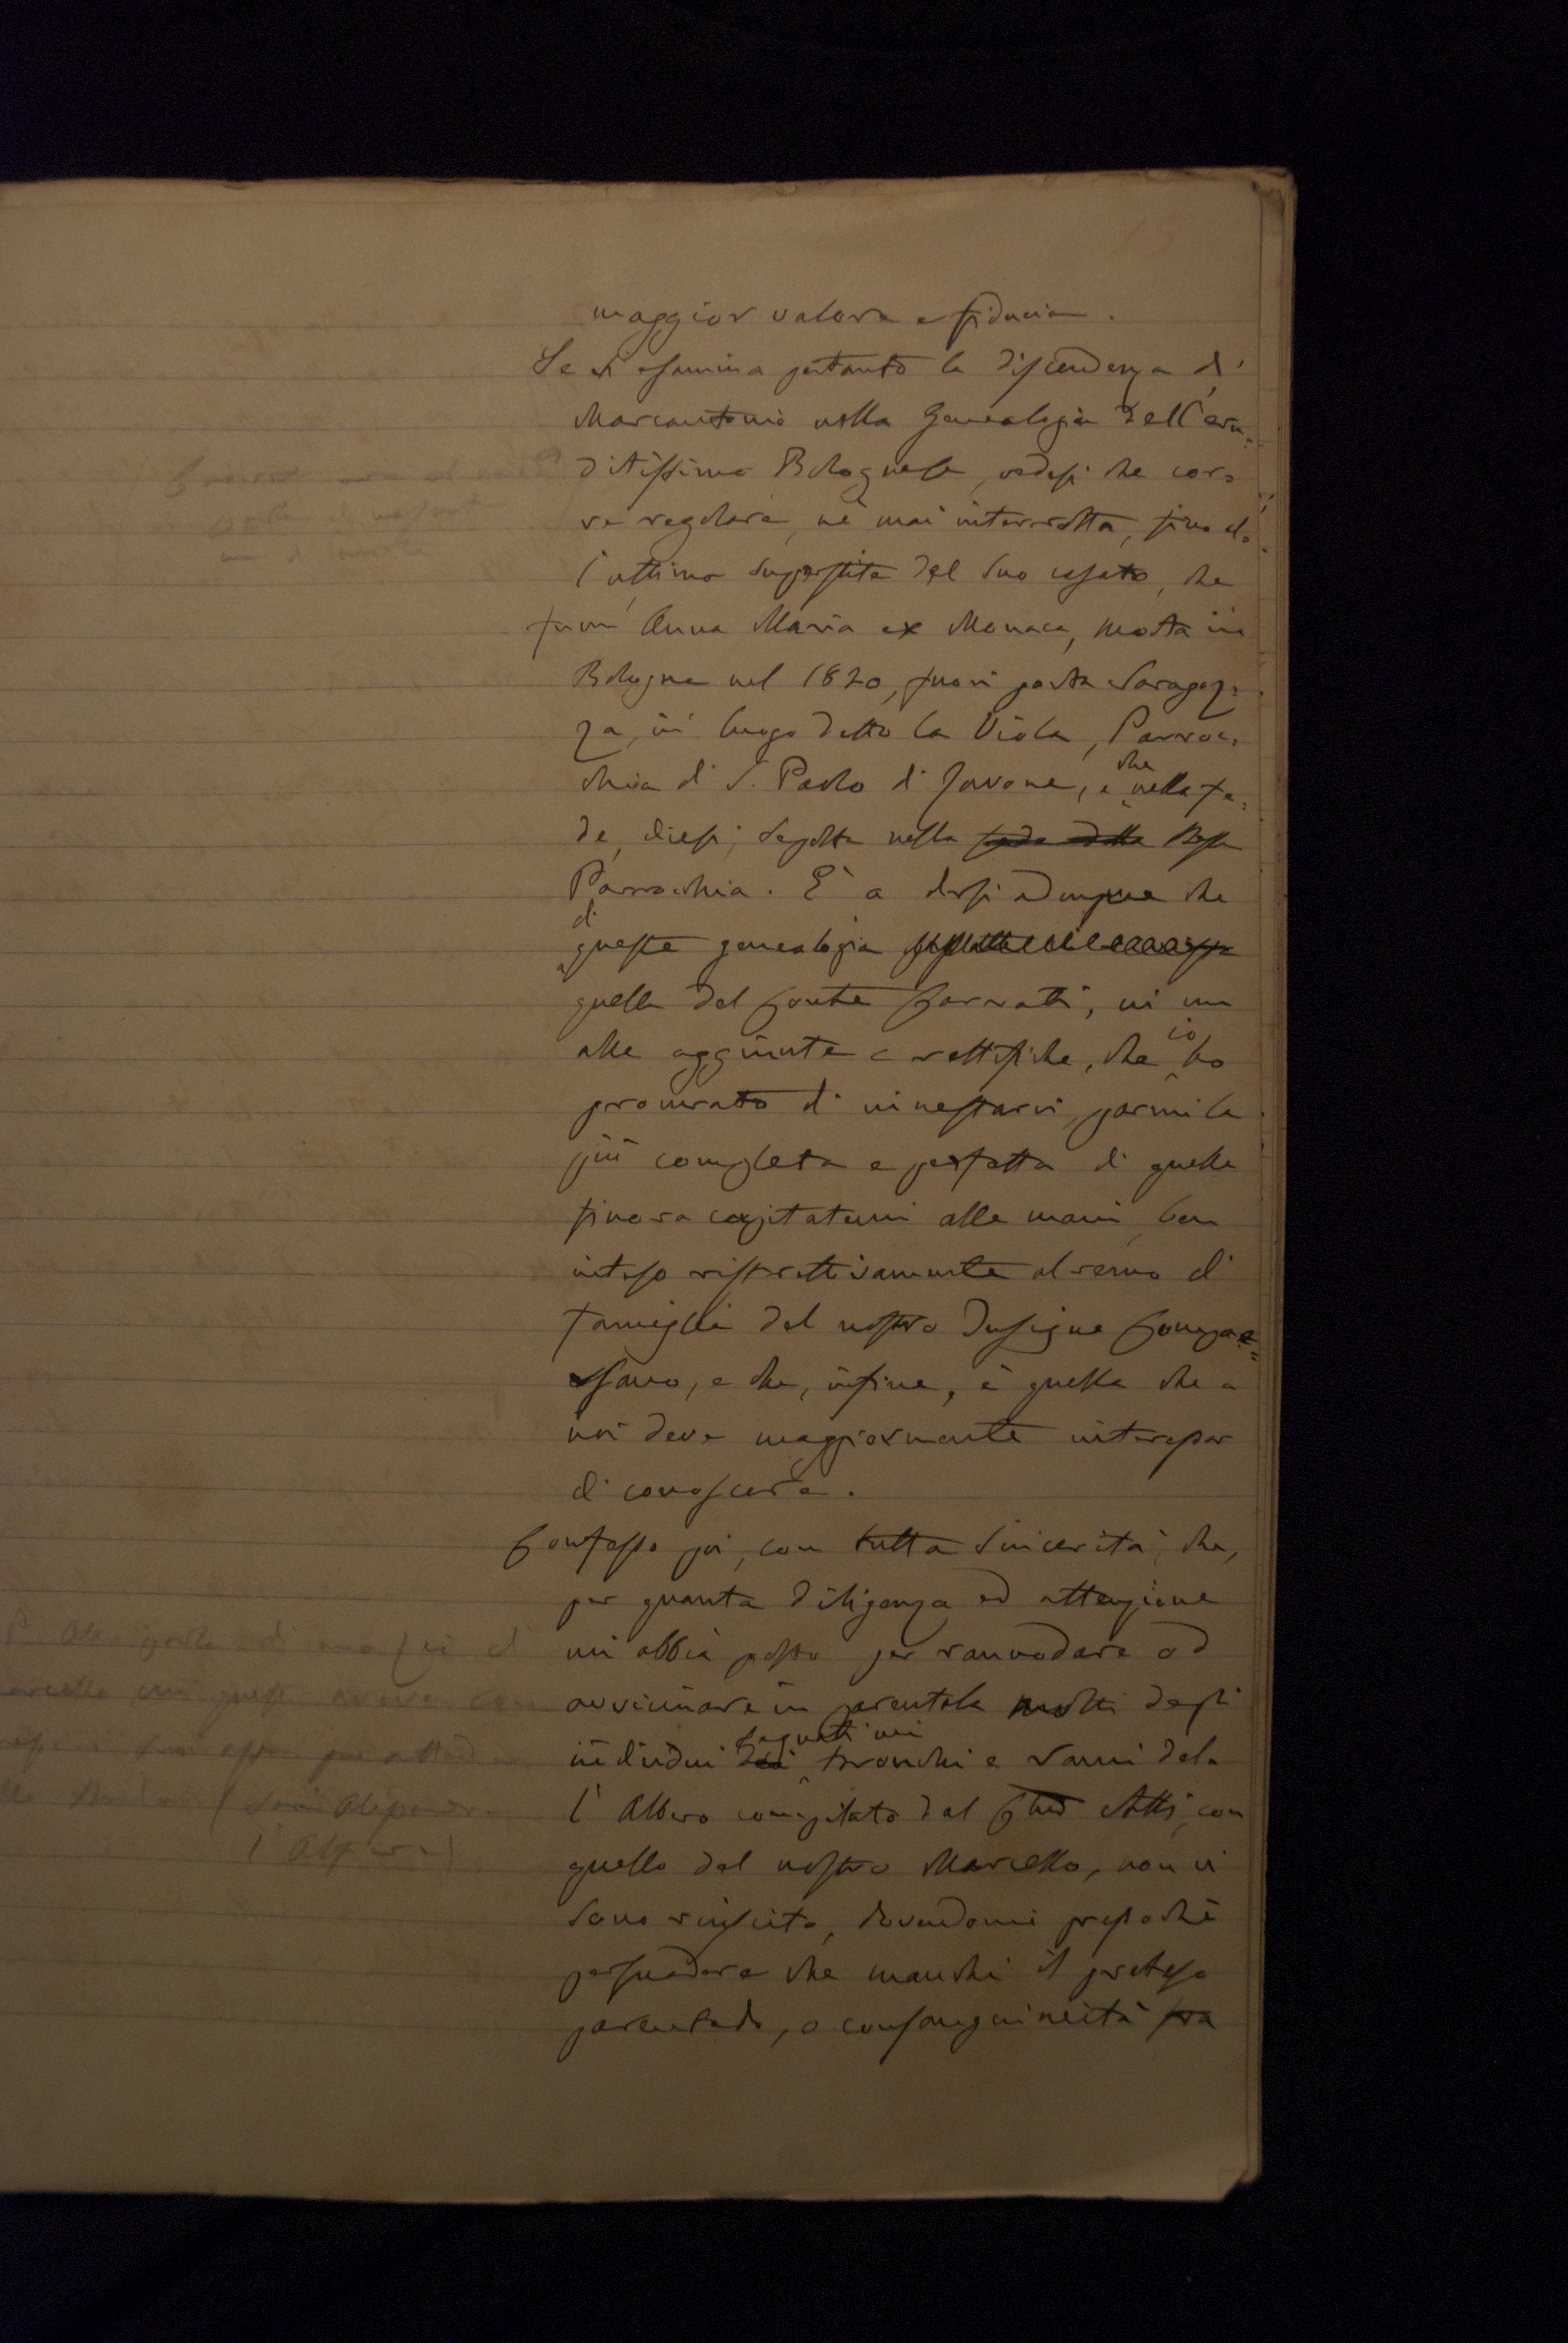 maggior valore e fiducia.
Se si esamina pertanto la discendenza di
Marcantonio nella Genealogia dell'eru-
ditissimo Bolognese, vedesi che cor-
re regolare, nè mai interrotta, fino al-
l'ultimo superstite del suo casato, che
fu un' Anna Maria ex Monaca, morta in
Bologna nel 1820, fuori porta Saragoz-
za, in luogo detto la Viola, Parroc-
chia di S. Paolo di Javone, e che nella fe-
de, dicesi, sepolta nella fede della
Parrocchia. È a dirsi adunque che
di queste genealogia
quella del Conte Carrati, in un
alle aggiunte e rettifiche, che io ho
procurato di innestarvi, parmi la
più completa e perfetta di quelle
finora capitatemi alle mani, ben
inteso ristrettivamente al ramo di
famiglia del nostro Insigne Compae-
sano, e che, infine, è quella che a
noi deve maggiormente interessar
di conoscere.
Confesso poi, con tutta sincerità, che,
per quanta diligenza ed attenzione
mi abbia posto per rannodare od
avvicinare in parentela molti degli
individui dei segnati nei tronchi e rami del-
l'Albero compilato dal Atti, con
quello del nostro Marcello, non vi
sono riuscito, dovendomi pressochè
persuadere che manchi il preteso
parentado, o consanguineità fra